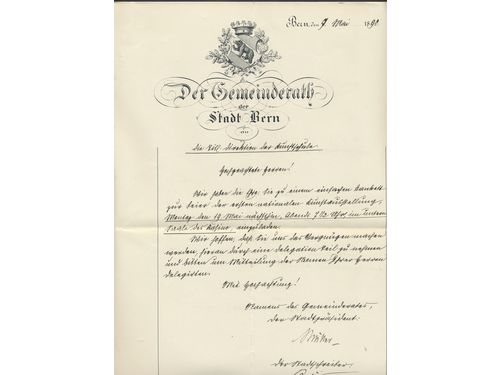 Bern, den 9. Mai 1890
Der Gemeinderath
der
Stadt Bern
an
die Titl. Direktion der Kunstschule
Hochgeachtete Herren!
Wir haben die Ehre Sie zu einem einfachen Bankett
zur Feier der ersten nationalen Kunstausstellung,
Montag den 19 Mai nächsthin, Abends 7 1/2 Uhr im untern
Saale des Casino, einzuladen.
Wir hoffen, daß Sie uns das Vergnügen machen
werden, hieran durch eine Delegation Teil zu nehmen
und bitten um Mitteilung der Namen Ihrer Herren
Delegirten.
Mit Hochachtung!
Namens des Gemeinderates,
Der Stadtpräsident:
Müller
Der Stadtschreiber,